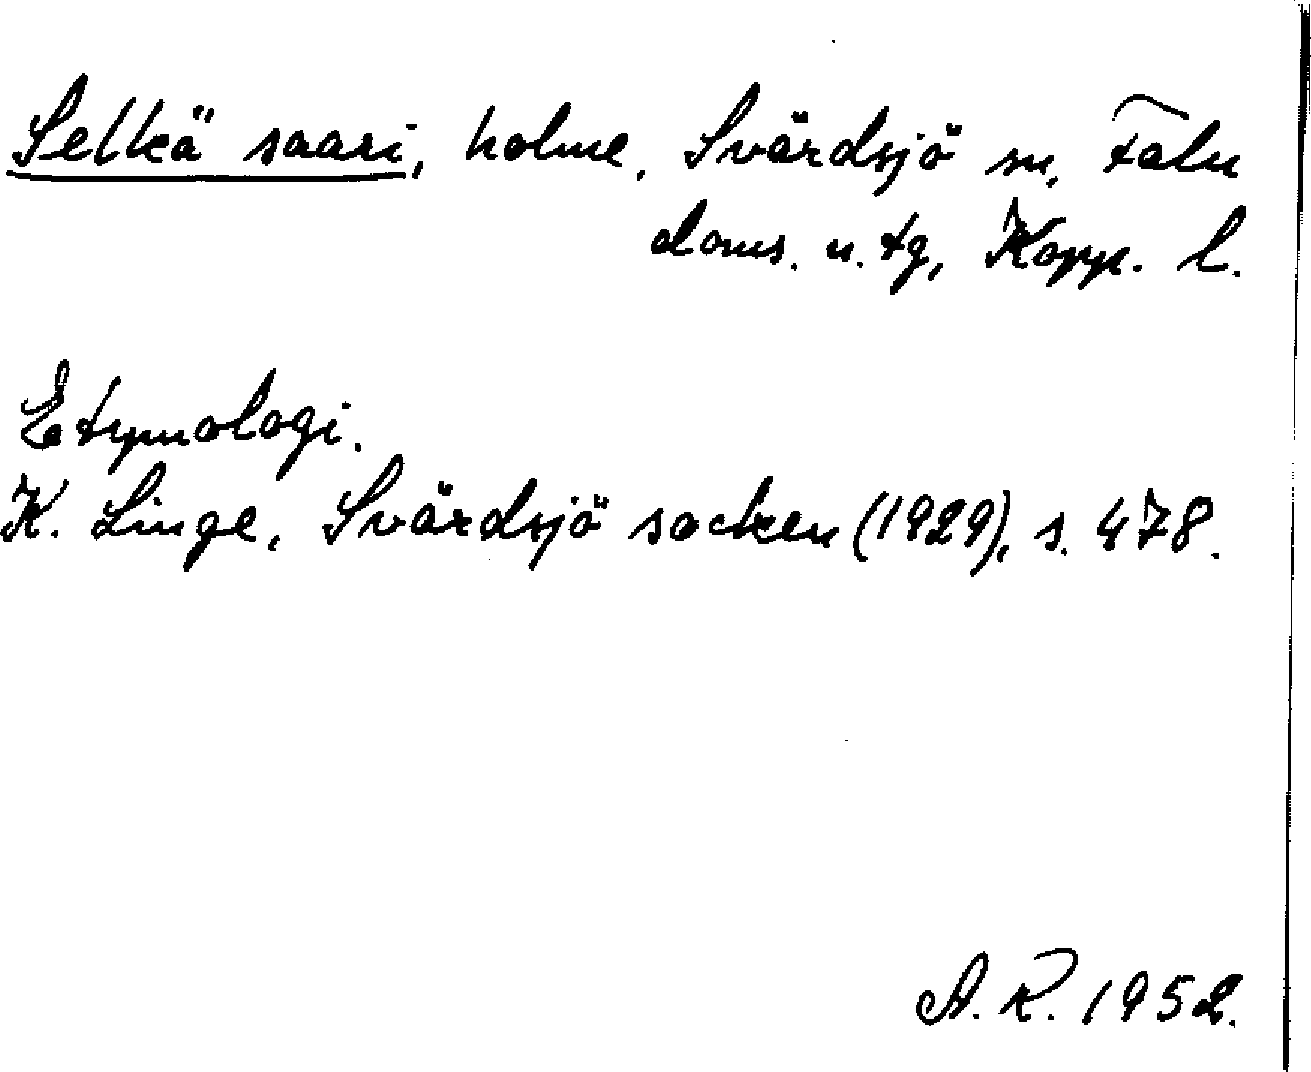 Selkä saari, holme, Svärdsjö sn, Falu
doms. n. tg, Kopp. l.
Etymologi.
K. Linge, Svärdsjö socken (1929), s. 478.
A. R. 1952.